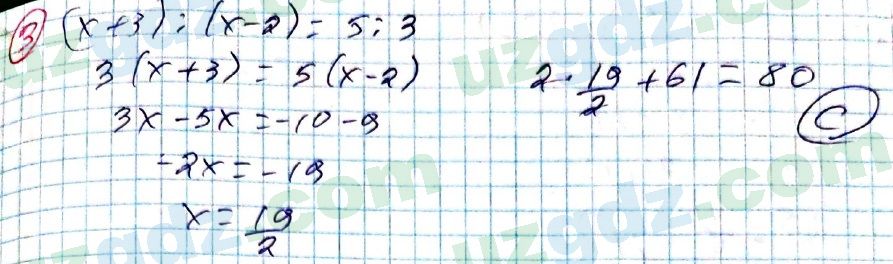 ③ (x+3) : (x-2) = 5 : 3
3(x+3) = 5(x-2)
3x - 5x = -10 - 9
-2x = -19
x = 19/2
2 · 19/2 + 61 = 80
C
uzgdz.com